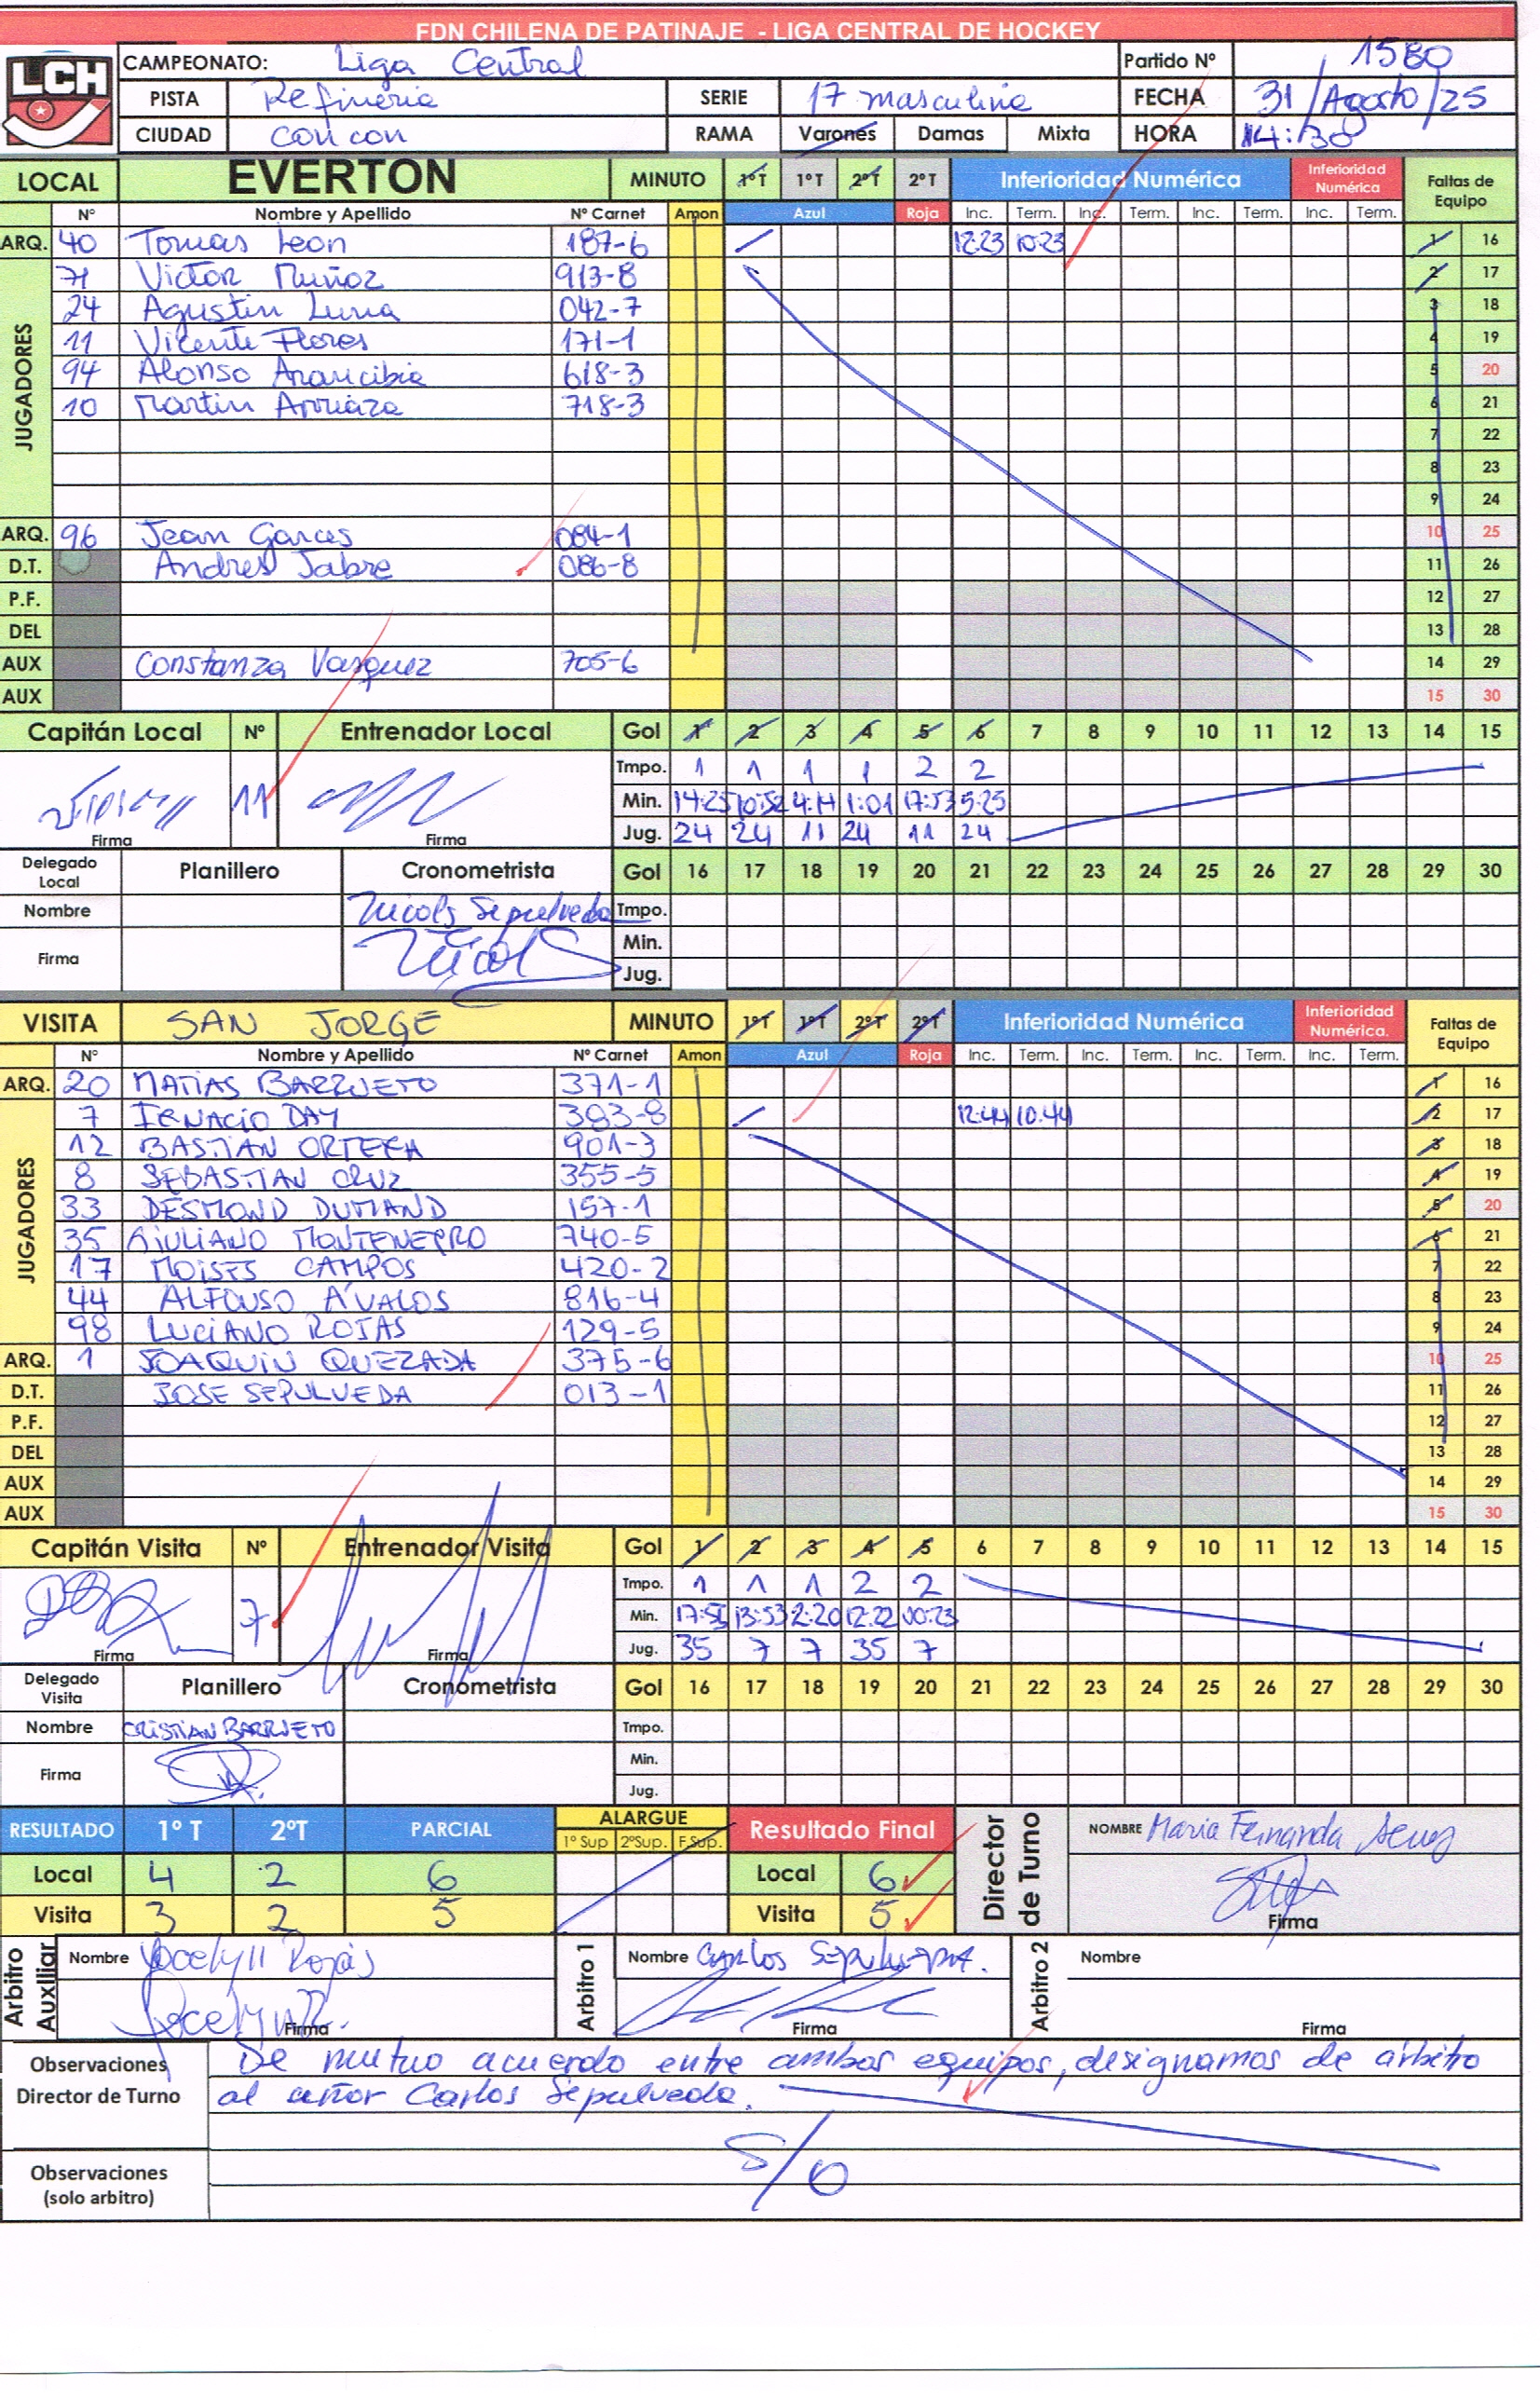 FDN CHILENA DE PATINAJE - LIGA CENTRAL DE HOCKEY
LCH
CAMPEONATO: Liga Central Partido Nº 1580
PISTA Refineria SERIE 17 masculina FECHA 31/Agosto/25
CIUDAD con con RAMA Varones Damas Mixta HORA 14:30
LOCAL EVERTON MINUTO 1ºT 1ºT 2ºT 2ºT Inferioridad Numérica Inferioridad Numérica Faltas de Equipo
Nº Nombre y Apellido Nº Carnet Amon Azul Roja Inc. Term. Inc. Term. Inc. Term. Inc. Term.
ARQ. 40 Tomas Leon 187-6 12:23 10:23 1 16
JUGADORES
71 Victor Muñoz 913-8 2 17
24 Agustin Luna 042-7 3 18
11 Vicente Flores 171-1 4 19
94 Alonso Arancibia 618-3 5 20
10 Martin Arriaza 718-3 6 21
7 22
8 23
9 24
ARQ. 96 Jean Garces 084-1 10 25
D.T. Andres Jabre 086-8 11 26
P.F. 12 27
DEL 13 28
AUX Constanza Vasquez 705-6 14 29
AUX 15 30
Capitán Local Nº Entrenador Local Gol 1 2 3 4 5 6 7 8 9 10 11 12 13 14 15
Tmpo. 1 1 1 1 2 2
11 Min. 14:25 10:52 4:14 1:01 17:53 5:25
Firma Firma Jug. 24 24 11 24 11 24
Delegado Local Planillero Cronometrista Gol 16 17 18 19 20 21 22 23 24 25 26 27 28 29 30
Nombre Nicols Sepulveda Tmpo.
Min.
Firma Jug.
VISITA SAN JORGE MINUTO 1ºT 1ºT 2ºT 2ºT Inferioridad Numérica Inferioridad Numérica. Faltas de Equipo
Nº Nombre y Apellido Nº Carnet Amon Azul Roja Inc. Term. Inc. Term. Inc. Term. Inc. Term.
ARQ. 20 MATIAS BARRUETO 371-1 1 16
JUGADORES
7 IGNACIO DAY 383-8 12:44 10:44 2 17
12 BASTIAN ORTEGA 901-3 3 18
8 SEBASTIAN CRUZ 355-5 4 19
33 DESMOND DUMAND 157-1 5 20
35 GIULIANO MONTENEGRO 740-5 6 21
17 MOISES CAMPOS 420-2 7 22
44 ALFONSO ÁVALOS 816-4 8 23
98 LUCIANO ROJAS 129-5 9 24
ARQ. 1 JOAQUIN QUEZADA 375-6 10 25
D.T. JOSE SEPULVEDA 013-1 11 26
P.F. 12 27
DEL 13 28
AUX 14 29
AUX 15 30
Capitán Visita Nº Entrenador Visita Gol 1 2 3 4 5 6 7 8 9 10 11 12 13 14 15
Tmpo. 1 1 1 2 2
7 Min. 17:55 13:53 2:20 12:22 00:23
Firma Firma Jug. 35 7 7 35 7
Delegado Visita Planillero Cronometrista Gol 16 17 18 19 20 21 22 23 24 25 26 27 28 29 30
Nombre CRISTIAN BARRUETO Tmpo.
Min.
Firma Jug.
RESULTADO 1º T 2ºT PARCIAL ALARGUE 1º Sup 2ºSup. F.Sup. Resultado Final Director de Turno NOMBRE Maria Fernanda
Local 4 2 6 Local 6
Visita 3 2 5 Visita 5 Firma
Arbitro Auxiliar Nombre Jocelyn Rojas Arbitro 1 Nombre Carlos Sepulveda. Arbitro 2 Nombre
Firma Firma Firma
Observaciones Director de Turno De mutuo acuerdo entre ambos equipos, designamos de árbitro
al señor Carlos Sepulveda.
S/O
Observaciones (solo arbitro)